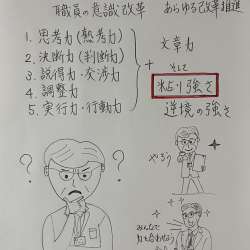 職員の意識改革 あらゆる改革推進
1. 思考力(熟考力)
2. 決断力(判断力)
3. 説得力・交渉力
4. 調整力
5. 実行力・行動力
+
文章力
そして
粘り強さ
逆境の強さ
やろう
みんなで
力を合わせよう
? ?